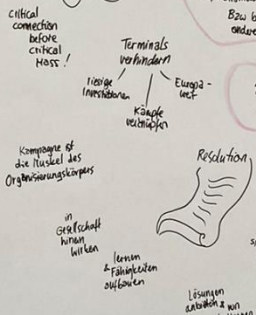 Critical
connection
before
critical
Mass!
Terminals
verhindern
riesige
Investitionen
Europa-
weit
Kämpfe
verknüpfen
Bzw
andere
Kampagne ist
die Muskel des
Organisierungskörpers
Resolution
in
Gesellschaft
hinein
wirken
lernen
& Fähigkeiten
aufbauen
Lösungen
anbieten & von